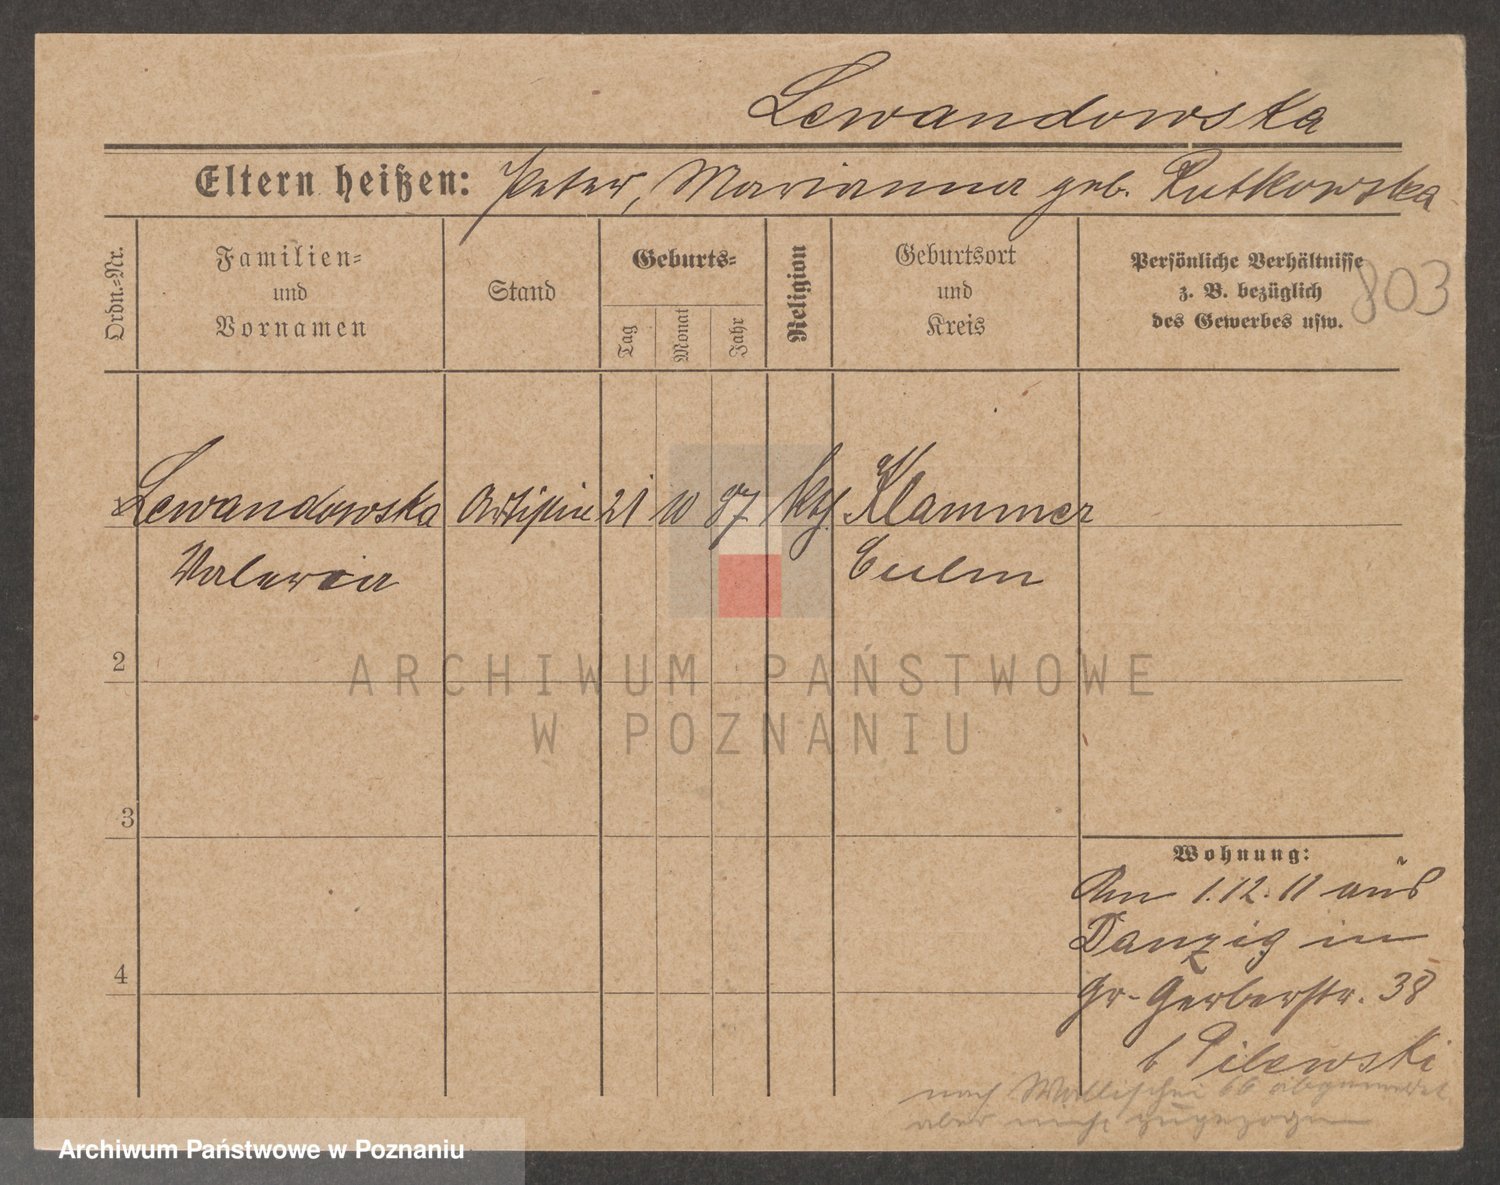 Lewandowska
Eltern heißen: Peter, Marianna geb. Rutkowska
Ordn.-Nr.
Familien-
und
Vornamen
Stand
Geburts-
Tag
Monat
Jahr
Religion
Geburtsort
und
Kreis
Persönliche Verhältnisse
z. B. bezüglich
des Gewerbes usw.
803
Lewandowska Artistin 21 10 87 kth Klammer
Valeria Culm
2
ARCHIWUM PAŃSTWOWE
W POZNANIU
3
Wohnung:
Am 1.12.11 aus
Danzig in
4
Gr. Gerberstr. 38
b Pilewski
nach Wallischei 66 abgemeldet
aber nicht zugezogen
Archiwum Państwowe w Poznaniu